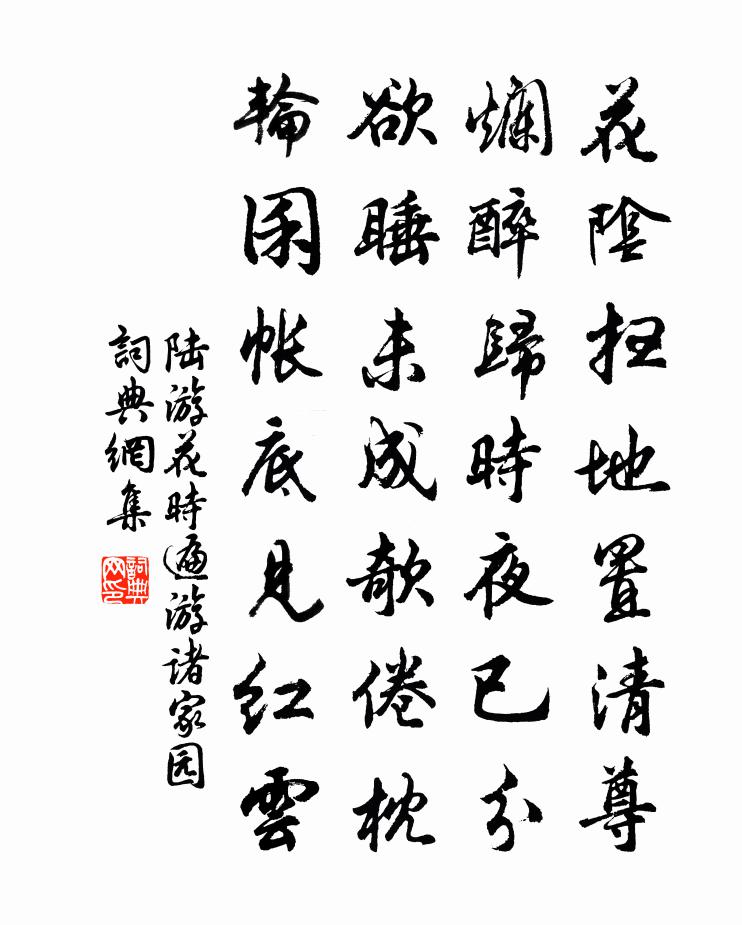 花陰扫地置清尊
爛醉歸時夜已分
欲睡未成欹倦枕
輪囷帳底見紅雲
陆游花時遍游诸家园
詞典網集
詞典网印